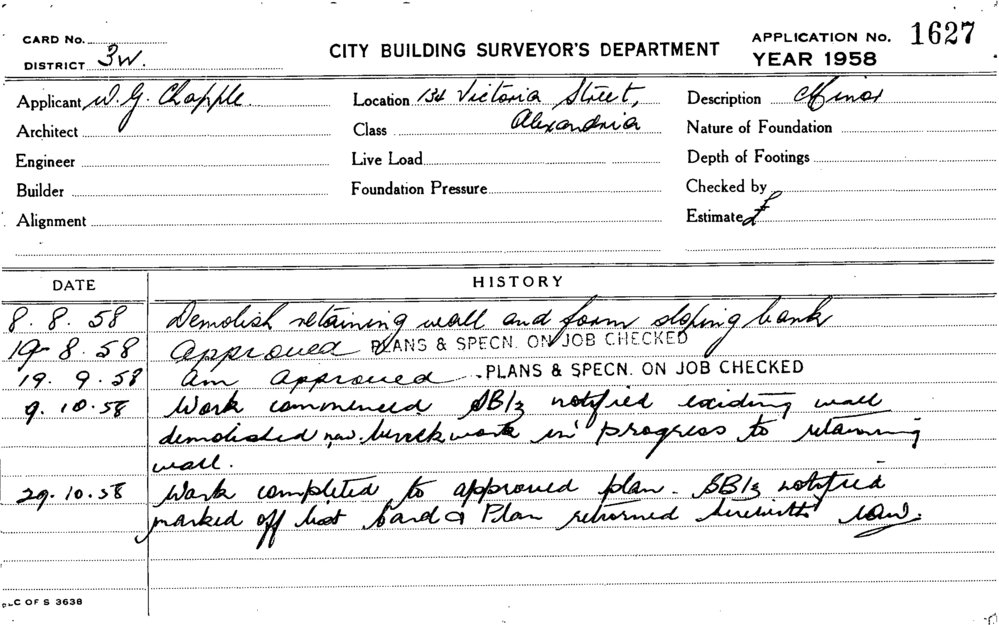 CARD No.
DISTRICT 3W.
CITY BUILDING SURVEYOR'S DEPARTMENT
APPLICATION No. 1627
YEAR 1958
Applicant W. G. Chapple
Location 134 Victoria Street,
Description Minor
Architect
Class Alexandria
Nature of Foundation
Engineer
Live Load
Depth of Footings
Builder
Foundation Pressure
Checked by
Alignment
Estimate £
DATE HISTORY
8. 8. 58 Demolish retaining wall and form sloping bank
19 8. 58 Approved PLANS & SPECN. ON JOB CHECKED
19. 9. 58 am approved PLANS & SPECN. ON JOB CHECKED
9. 10. 58 Work commenced SB/3 notified existing wall
demolished new brickwork in progress to retaining
wall.
29. 10. 58 Work completed to approved plan. SB/3 notified
marked off list Card & Plan returned herewith
C OF S 3638